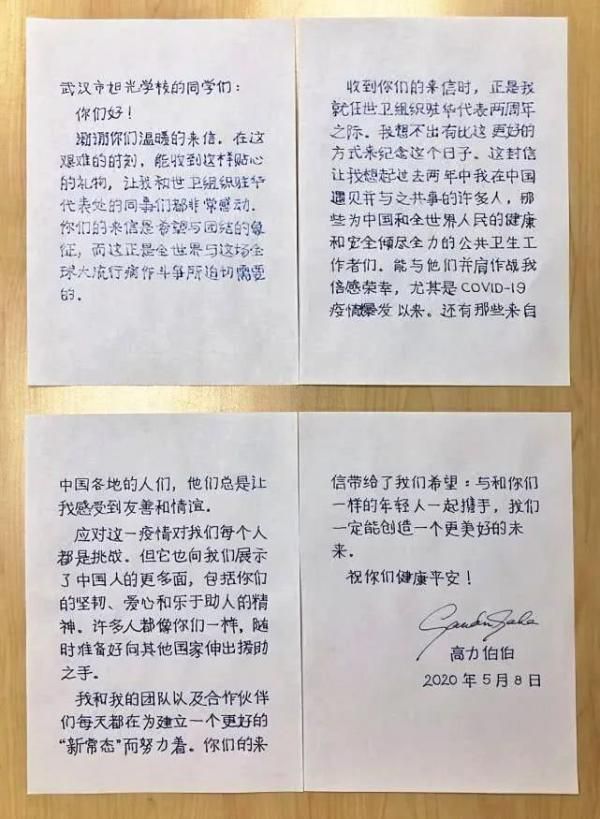 武汉市旭光学校的同学们：
你们好！
谢谢你们温暖的来信。在这
艰难的时刻，能收到这样贴心
的礼物，让我和世卫组织驻华
代表处的同事们都非常感动。
你们的来信是希望与团结的象
征，而这正是全世界与这场全
球大流行病作斗争所迫切需要
的。
收到你们的来信时，正是我
就任世卫组织驻华代表两周年
之际。我想不出有比这更好的
方式来纪念这个日子。这封信
让我想起过去两年中我在中国
遇见并与之共事的许多人，那
些为中国和全世界人民的健康
和安全倾尽全力的公共卫生工
作者们。能与他们并肩作战我
倍感荣幸，尤其是COVID-19
疫情爆发以来。还有那些来自
中国各地的人们，他们总是让
我感受到友善和情谊。
应对这一疫情对我们每个人
都是挑战。但它也向我们展示
了中国人的更多面，包括你们
的坚韧、爱心和乐于助人的精
神。许多人都像你们一样，随
时准备好向其他国家伸出援助
之手。
我和我的团队以及合作伙伴
们每天都在为建立一个更好的
“新常态”而努力着。你们的来
信带给了我们希望：与和你们
一样的年轻人一起携手，我们
一定能创造一个更美好的未
来。
祝你们健康平安！
高力伯伯
2020年5月8日